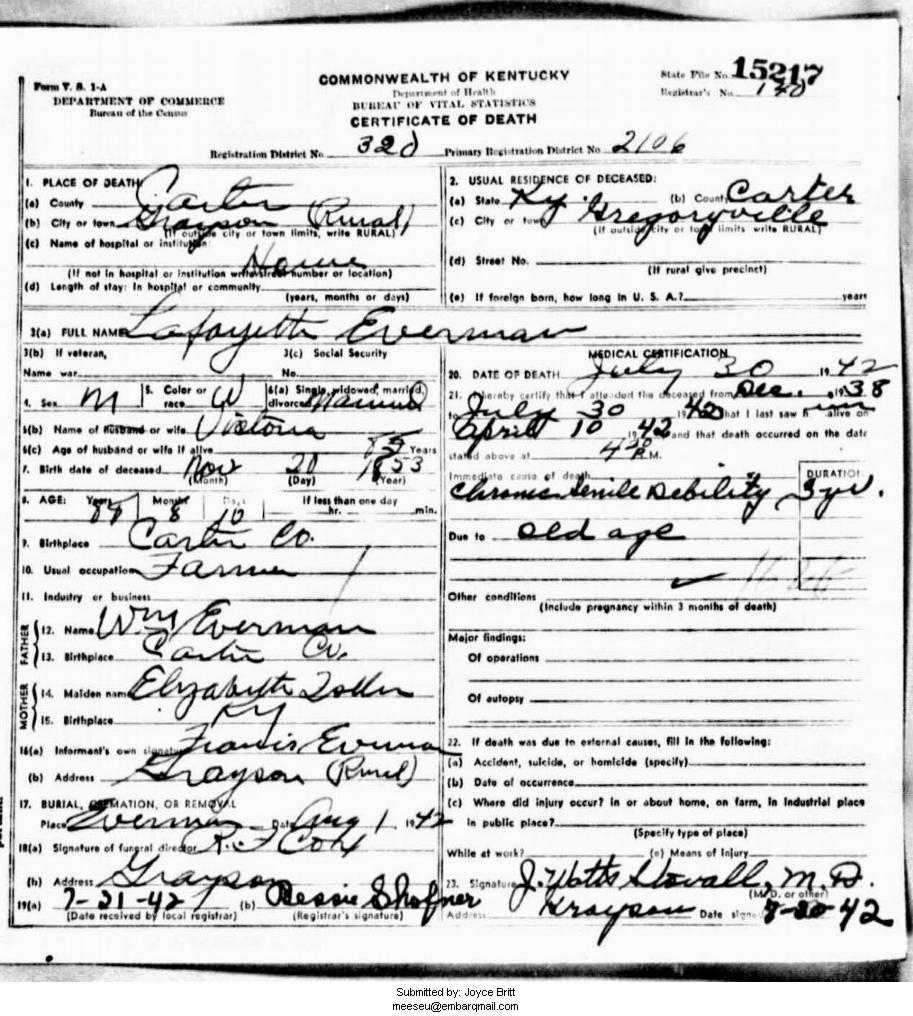 Form V. S. 1-A
DEPARTMENT OF COMMERCE
Bureau of the Census
COMMONWEALTH OF KENTUCKY
Department of Health
BUREAU OF VITAL STATISTICS
CERTIFICATE OF DEATH
State File No. 15217
Registrar's No.
Registration District No. 320 Primary Registration District No. 2106
1. PLACE OF DEATH
(a) County Carter
(b) City or town Grayson (Rural)
(If outside city or town limits, write RURAL)
(c) Name of hospital or institution:
Home
(If not in hospital or institution write street number or location)
(d) Length of stay: In hospital or community
(years, months or days)
2. USUAL RESIDENCE OF DECEASED:
(a) State Ky. (b) County Carter
(c) City or town Gregoryville
(If outside city or town limits write RURAL)
(d) Street No.
(If rural give precinct)
(e) If foreign born, how long in U. S. A.? years
3(a) FULL NAME Lafayette Everman
3(b) If veteran,
Name war
3(c) Social Security
No.
4. Sex M 5. Color or race W 6(a) Single, widowed, married, divorced Married
6(b) Name of husband or wife Victoria
6(c) Age of husband or wife if alive Years
7. Birth date of deceased Nov 20 1853
(Month) (Day) (Year)
8. AGE: Years 88 Months 8 Days 10 If less than one day
hr. min.
9. Birthplace Carter Co.
10. Usual occupation Farmer
11. Industry or business
FATHER
12. Name Wm Everman
13. Birthplace Carter Co.
MOTHER
14. Maiden name Elizabeth
15. Birthplace Ky
16(a) Informant's own signature Francis Everman
(b) Address Grayson (Rural)
17. BURIAL, CREMATION, OR REMOVAL
Place Everman Date Aug 1, 1942
18(a) Signature of funeral director R. F Cox
(b) Address Grayson
19(a) 7-31-42 (b) Bessie Shofner
(Date received by local registrar) (Registrar's signature)
MEDICAL CERTIFICATION
20. DATE OF DEATH July 30 1942
21. I hereby certify that I attended the deceased from Dec. 1938
to July 30 1942 that I last saw him alive on
April 10 1942 and that death occurred on the date
stated above at 4 30 P.M.
Immediate cause of death DURATION
Chronic Senile Debility 3 yr.
Due to old age
Other conditions
(Include pregnancy within 3 months of death)
Major findings:
Of operations
Of autopsy
22. If death was due to external causes, fill in the following:
(a) Accident, suicide, or homicide (specify)
(b) Date of occurrence
(c) Where did injury occur? in or about home, on farm, in industrial place
in public place?
(Specify type of place)
While at work? (e) Means of injury
23. Signature J. Watts Stovall, M.D.
(M.D. or other)
Address Grayson Date signed 7-30-42
Submitted by: Joyce Britt
meeseu@embarqmail.com